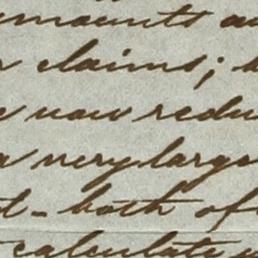 amounts
claims;
now redu
a very large
both of
calculate